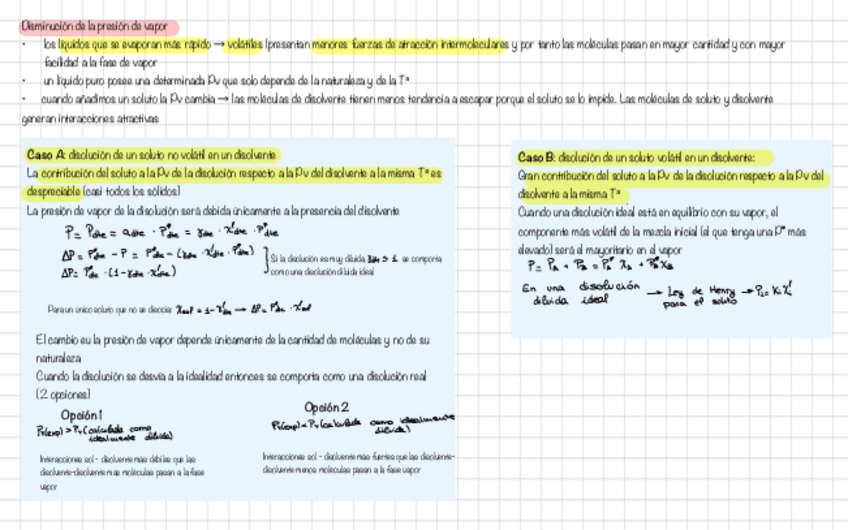 Disminución de la presión de vapor
• los líquidos que se evaporan más rápido → volátiles (presentan menores fuerzas de atracción intermoleculares y por tanto las moléculas pasan en mayor cantidad y con mayor
facilidad a la fase de vapor
• un líquido puro posee una determinada Pv que solo depende de la naturaleza y de la Tª
• cuando añadimos un soluto la Pv cambia → las moléculas de disolvente tienen menos tendencia a escapar porque el soluto se lo impide. Las moléculas de soluto y disolvente
generan interacciones atractivas
Caso A: disolución de un soluto no volátil en un disolvente
La contribución del soluto a la Pv de la disolución respecto a la Pv del disolvente a la misma Tª es
despreciable (casi todos los sólidos)
La presión de vapor de la disolución será debida únicamente a la presencia del disolvente
P = Pdte = adte · P*dte = γdte · χ'dte · P*dte
ΔP = P*dte - P = P*dte - (γdte · χ'dte · P*dte)
ΔP = P*dte · (1 - γdte · χ'dte)
Si la disolución es muy diluida se comporta
como una disolución diluida ideal
Para un único soluto que no se disocia: χsol = 1 - χ'dte → ΔP = P*dte · χ'sol
El cambio eu la presión de vapor depende únicamente de la cantidad de moléculas y no de su
naturaleza
Cuando la disolución se desvia a la idealidad entonces se comporta como una disolución real
(2 opciones)
Opción 1
Pv(exp) > Pv (calculada como
idealmente diluida)
Interacciones sol - disolvente mas débiles que las
disolvente-disolvente mas moleculas pasan a la fase
vapor
Opción 2
Pv(exp) < Pv (calculada como idealmente
diluida)
Interacciones sol - disolvente mas fuertes que las disolvente-
disolvente menos moleculas pasan a la fase vapor
Caso B: disolución de un soluto volátil en un disolvente:
Gran contribución del soluto a la Pv de la disolución respecto a la Pv del
disolvente a la misma Tª
Cuando una disolución ideal está en equilibrio con su vapor, el
componente más volátil de la mezcla inicial (el que tenga una P* más
elevada) será el mayoritario en el vapor
P = PA + PB = P*A XA + P*B XB
En una disolución → Ley de Henry → Pi = Ki χi'
diluida ideal para el soluto